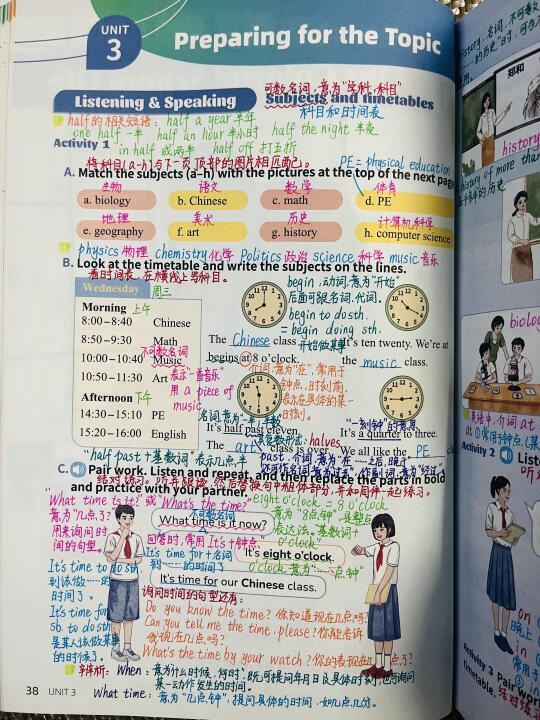 UNIT
3
Preparing for the Topic
可数名词，意为"学科，科目"
Listening & Speaking
Subjects and timetables
科目和时间表
half的相关短语：half a year半年
one half一半 half an hour半小时 half the night半夜
in half成两半 half off打五折
Activity 1
将科目(a-h)与下一页顶部的图片相匹配。
PE = physical education
A. Match the subjects (a–h) with the pictures at the top of the next page
生物 语文 数学 体育
a. biology b. Chinese c. math d. PE
地理 美术 历史 计算机科学
e. geography f. art g. history h. computer science
physics物理 chemistry化学 Politics政治 science科学 music音乐
B. Look at the timetable and write the subjects on the lines.
看时间表，在横线上写科目。
Wednesday 周三
Morning 上午
8:00–8:40 Chinese
8:50–9:30 Math
不可数名词
10:00–10:40 Music
10:50–11:30 Art
Afternoon 下午
14:30–15:10 PE
15:20–16:00 English
表示"一首音乐"
用a piece of
music
begin，动词，意为"开始"
后面可跟名词、代词。
begin to do sth.
= begin doing sth.
开始做某事
The Chinese class
begins at 8 o'clock.
It's ten twenty. We're at
the music class.
介词，意为"在"，常用于
钟点、时刻前，
表示在具体的某一
时刻。
名词，意为"一半；半数"
It's half past eleven.
其复数形式：halves
The art class is over.
"一刻钟"的意思
It's a quarter to three.
We all like the PE
"half past+基数词"表示几点半
C. Pair work. Listen and repeat, and then replace the parts in bold
结对练习。听并跟读，然后替换句中粗体部分，并和同伴一起练习。
and practice with your partner.
"What time is it?"或"What's the time?"
意为"几点了？"
用来询问时
间的句型。
eight o'clock = 8 o'clock
意为"8点钟"，是整点
表达法，"基数词+
o'clock"
不可数名词
What time is it now?
回答时，常用It's+钟点
It's eight o'clock.
It's time for+名词
到……的时间了
o'clock意为"……点钟"
It's time for our Chinese class.
It's time to do sth
到该做……的
时间了。
It's time for
sb. to do sth.
是某人该做某事
的时候了。
询问时间的句型还有：
Do you know the time？你知道现在几点吗？
Can you tell me the time, please？你能告诉
我现在几点吗？
What's the time by your watch？你的表现在几点了？
辨析：When：意为什么时候，何时"，既可提问年月日及具体时刻，也可询问
某一动作发生的时间。
What time：意为"几点钟"，提问具体的时间，如几点几分。
38 UNIT 3
history，名词，不可数
……的历史"时，可
郑和
history
history of more than
biology
Activity 2
Activity 3 Pair work
timetable.